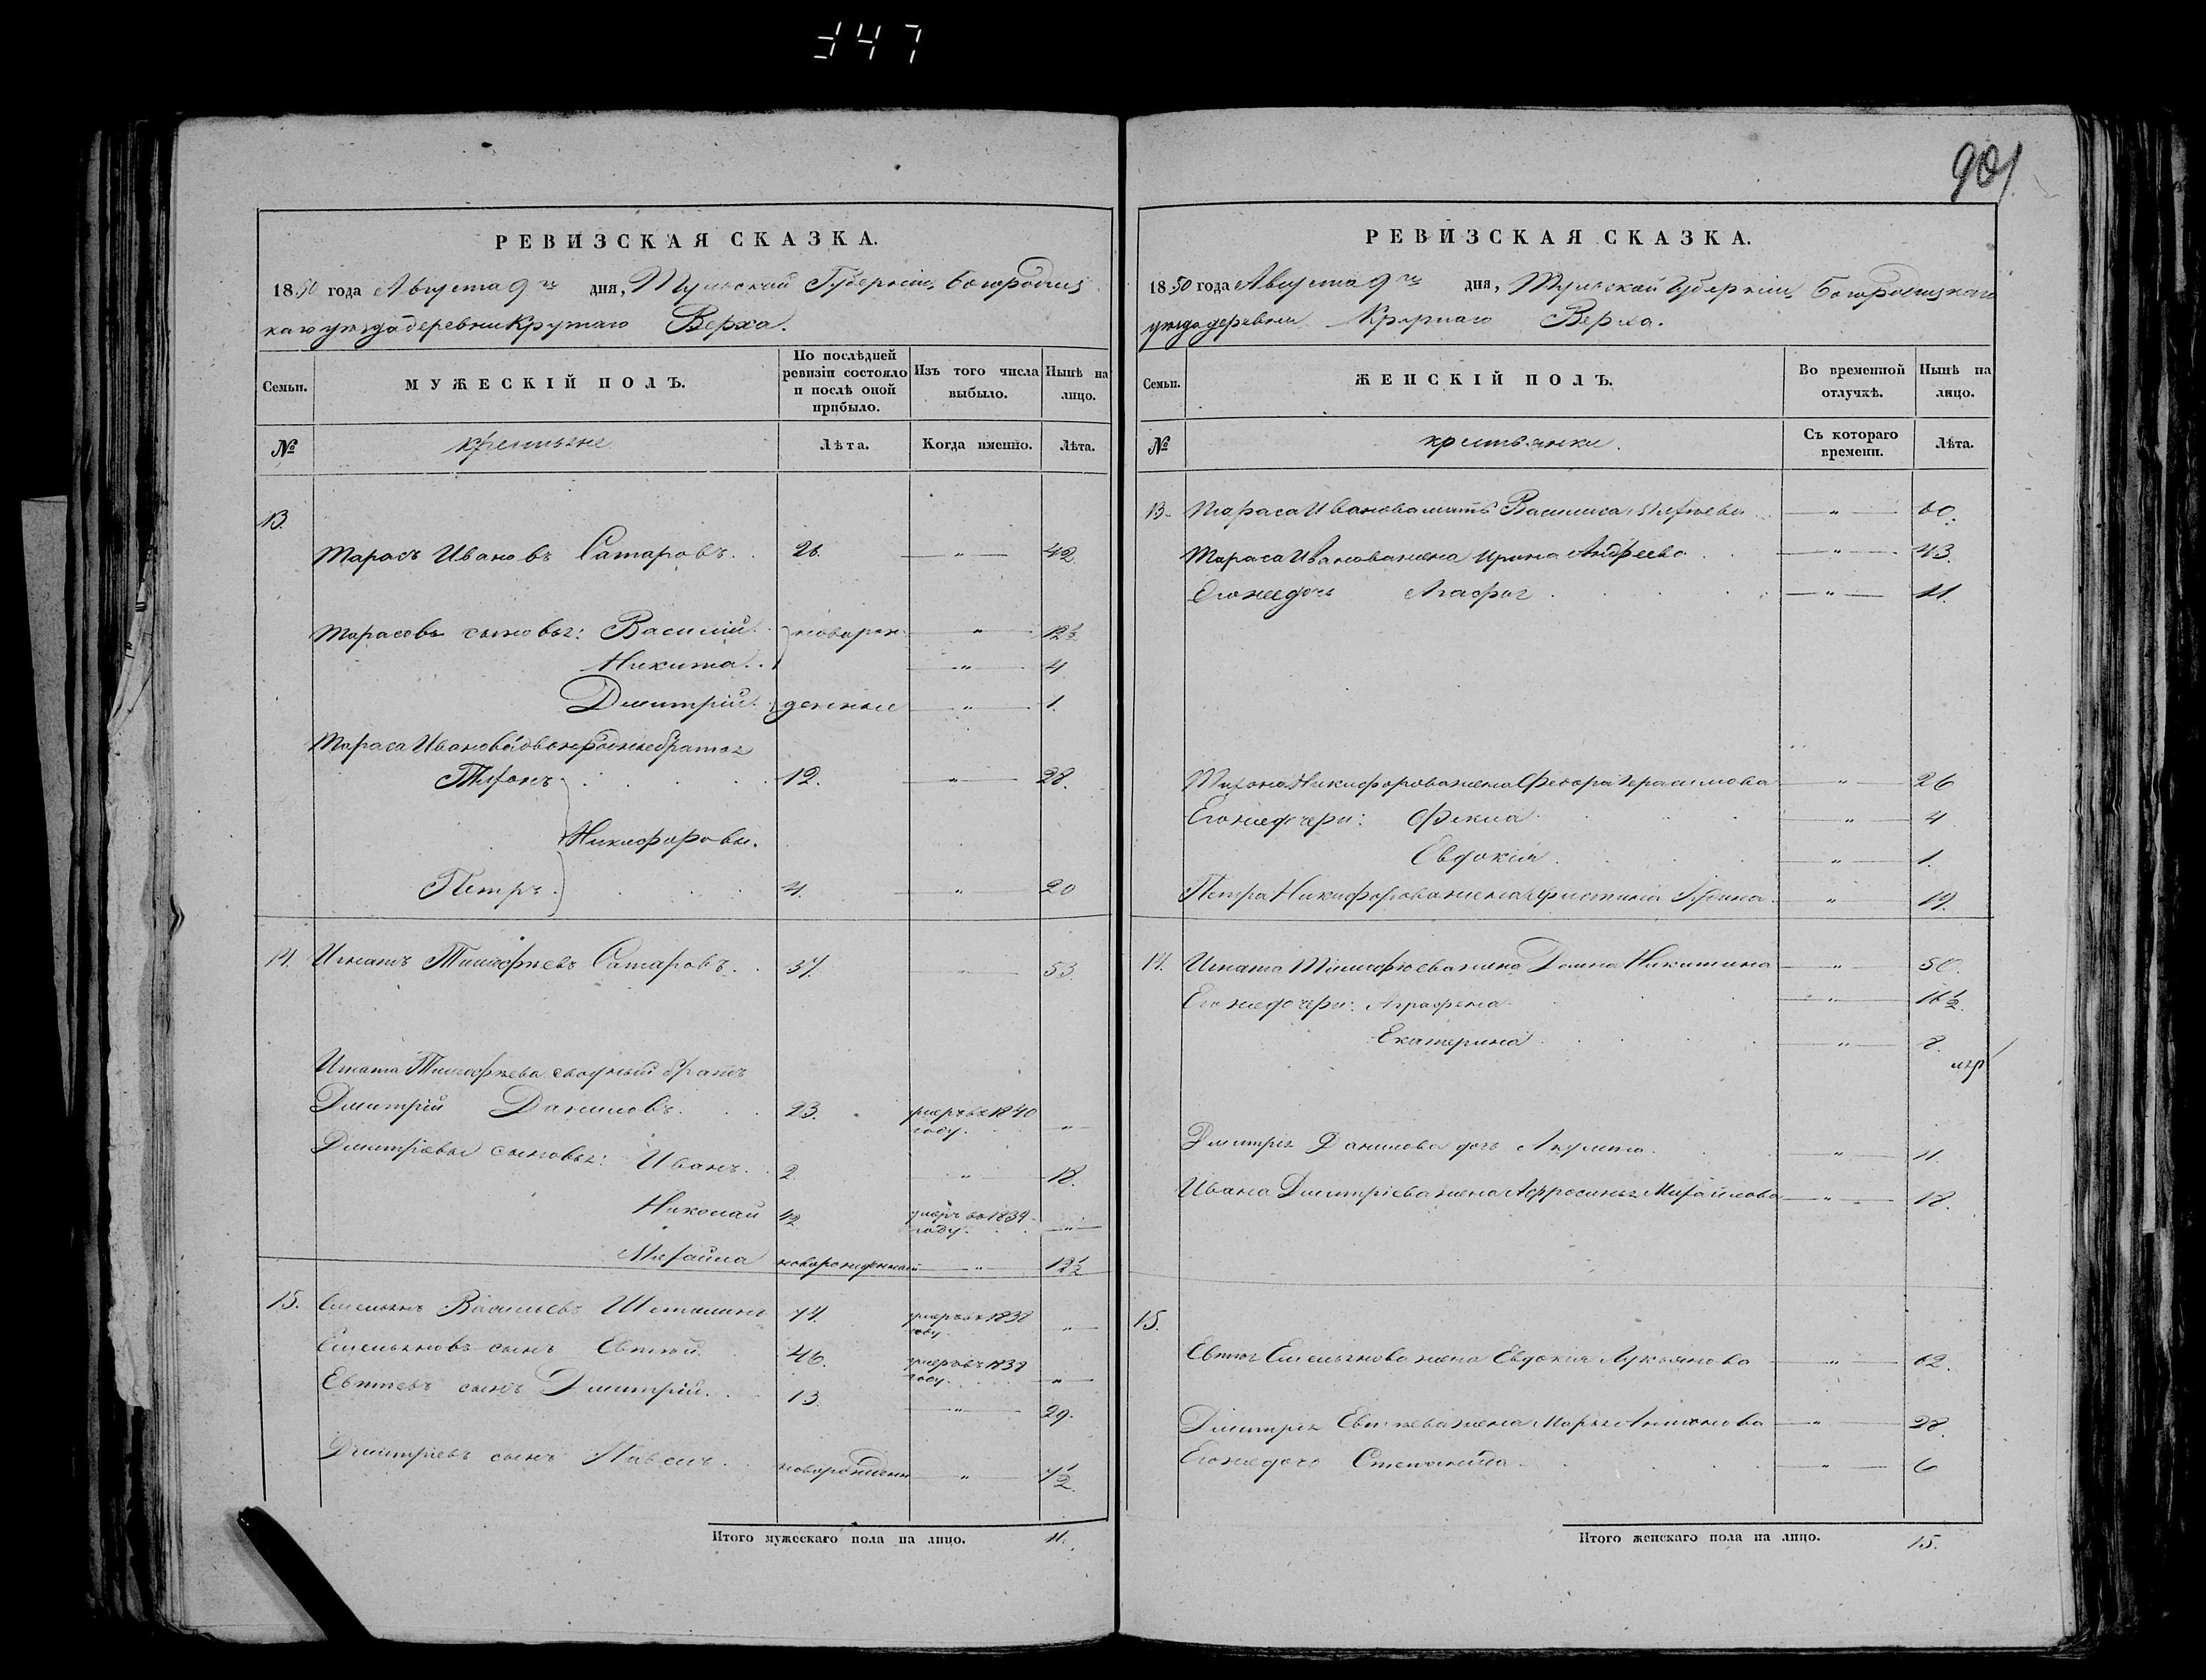 347
РЕВИЗСКАЯ СКАЗКА.
1850 года Августа 9го дня, Тульской Губерніи, Богородиц
каго уѣзда деревни Крутаго Верха.
Семьи.
МУЖЕСКІЙ ПОЛЪ.
По послѣдней ревизіи состояло и послѣ оной прибыло.
Изъ того числа выбыло.
Нынѣ на лицо.
№
крестьяне
Лѣта.
Когда именно.
Лѣта.
13.
Тарасъ Ивановъ Сатаровъ. 26. — " — 42.
Тарасовы сыновья: Василій новорож — " — 12½
Никита. — " — 4
Дмитрій. денные — " — 1.
Тараса Иванова двоюродные братья
Тихонъ 12. — " — 28.
Никифоровы.
Петръ. 4. — " — 20
14. Игнатъ Тимофѣевъ Сатаровъ. 37. — " — 53.
Игната Тимофѣева сводный братъ
Дмитрій Даниловъ. 23. умеръ въ 1840 году. "
Дмитріевы сыновья: Иванъ. 2. " 18.
Николай ½ умеръ въ 1839 году. — " —
Михайла новорожденный — " — 12½
15. Емельянъ Васильевъ 74. умеръ въ 1838 году — " —
Емельяновъ сынъ Евтѣй 46. умеръ въ 1839 году. — " —
Евтѣевъ сынъ Дмитрій. 13. — " — 29.
Дмитріевъ сынъ Павелъ. новорожденн — " — 7½
Итого мужескаго пола на лицо. 11.
901.
РЕВИЗСКАЯ СКАЗКА.
1850 года Августа 9го дня, Тульской Губерніи, Богородицкаго
уѣзда деревни Крутаго Верха.
Семьи.
ЖЕНСКІЙ ПОЛЪ.
Во временной отлучкѣ.
Нынѣ на лицо.
№
крестьянки.
Съ котораго времени.
Лѣта.
13. Тараса Иванова мать Василиса — " — 60.
Тараса Иванова жена Ирина Андреева — " — 43.
Его же дочь Агафья — " — 11.
Тихона Никифорова жена Федора Герасимова — " — 26
Его же дочери: Фекла — " — 4
Евдокія — " — 1.
Петра Никифорова жена — " — 19.
14. Игната Тимофѣева жена Домна Никитина — " — 50.
Его же дочери: Аграфена — " — 11½
Екатерина — " — 8.
Дмитрія Данилова дочь Акулина — " — 11.
Ивана Дмитріева жена Афросинья Михайлова — " — 18.
15.
Евтѣя Емельянова жена Евдокія Лукьянова — " — 62.
Дмитрія Евтѣева жена Марья — " — 28.
Его же дочь Степанида — " — 6
Итого женскаго пола на лицо. 15.